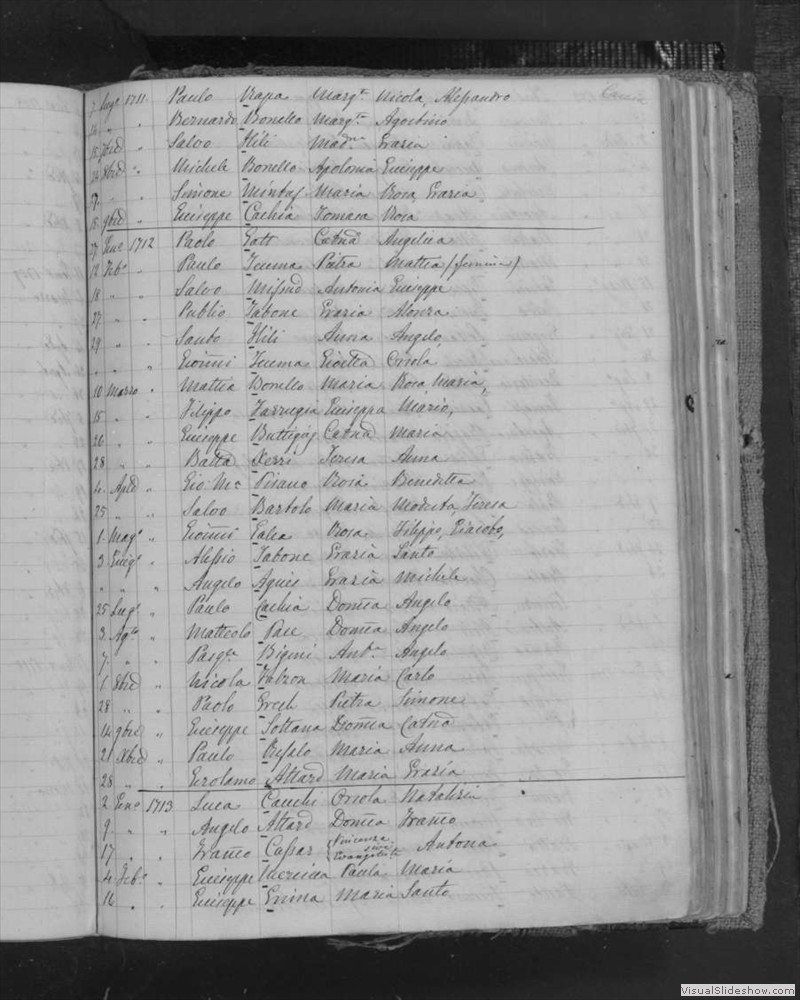 7 Lugº 1711. Paulo Vrapa Margta Nicola, Alessandro
Bernardo Bonello Margta Agostino
Salvo Hili Madna Grazia
Michele Bonello Apolonia Giuseppe
Simone Mintuf Maria Rosa, Grazia,
15. 9bre " Giuseppe Cachia Tomasa Rosa
1712 Paolo Gatt Catna Angelica
12 Febº " Paulo Teuma Pietra Mattia (femina)
18 " " Salvo Mifsud Antonia Giuseppe
27 " " Publio Tabone Grazia Alonza
29 " " Santo Hili Anna Angelo,
" " " Gioñni Teuma Orsola
10 Marzo " Mattia Bonello Maria Rosa Maria,
15 " " Filippo Farrugia Giuseppa Mario,
26 " " Giuseppe Buttigig Catna Maria
28 " " Batta Xerri Teresa Anna
4. Aple " Gio: Ma Pisano Rosa Benedetta
25 " " Salvo Bartolo Maria Modesta, Teresa
1. Magº " Gioñni Galea Rosa Filippo, Giacobo,
3 Giugº " Alessio Tabone Grazia Santo
" " " Angelo Agius Grazia Michele
25 Lugº " Paulo Cachia Domca Angelo
3. Agto " Matteolo Pace Domca Angelo
7. " " Pasqle Bigeni Anta Angelo
1 8bre " Nicola Falzon Maria Carlo
28 " " Paolo Grech Pietra Simone
14 9bre " Giuseppe Soltana Domca Catna
21 Xbre " Paulo Maria Anna
28 " " Gerolamo Attard Maria Grazia
2 Genº 1713 Luca Cauchi Orsola Natalizia
9. " " Angelo Attard Domca Franco
17 " " Franco Cassar Vincenza sive Evangelista Antona
4 Febº " Giuseppe Paula Maria
16 " " Giuseppe Maria Santo
VisualSlideshow.com